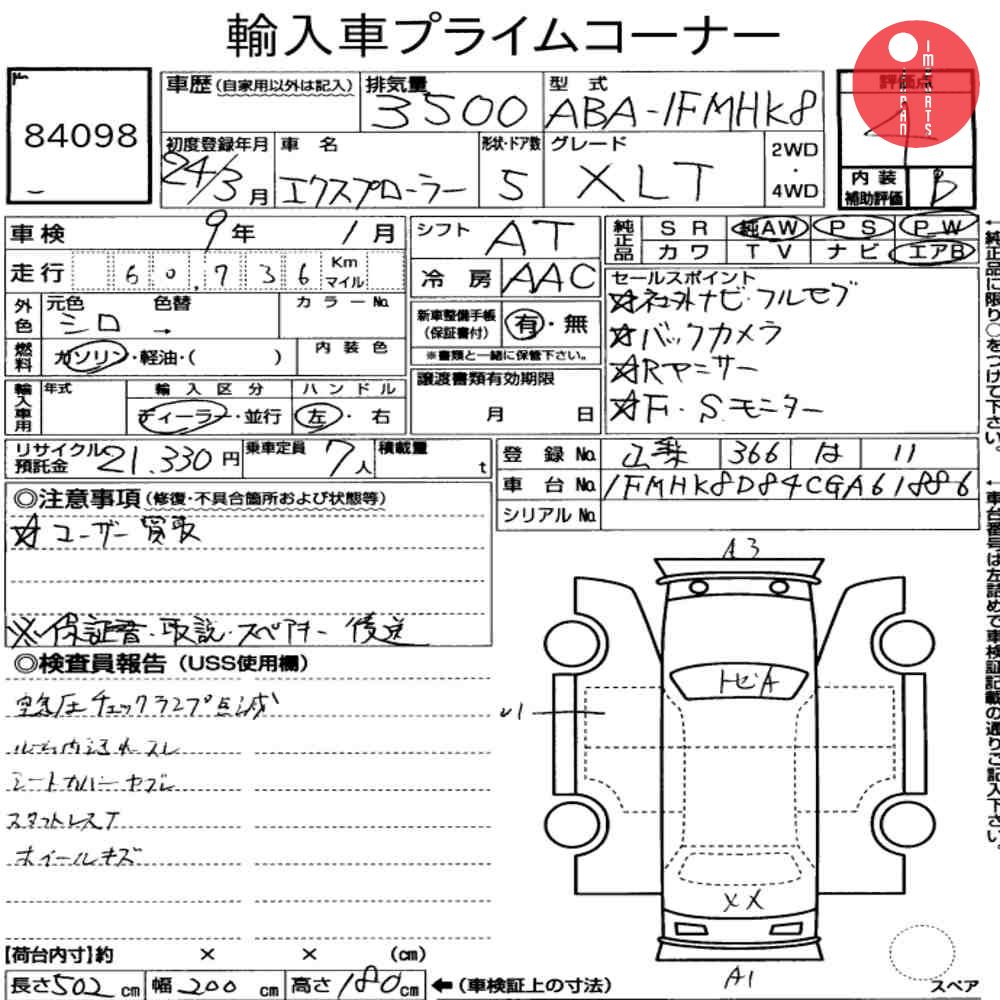 輸入車プライムコーナー
JAPAN IMPORTS
84098
車歴 (自家用以外は記入) 排気量 3500 型式 ABA-1FMHK8
評価点 4
初度登録年月 24/3月 車名 エクスプローラー 形状・ドア数 5 グレード XLT 2WD・4WD
内装補助評価 B
車検 9年 1月 シフト AT
純正品 SR 純AW PS PW
カワ TV ナビ エアB
走行 60,736 Km マイル 冷房 AAC
セールスポイント
☆社外ナビ・フルセグ
☆バックカメラ
☆Rヤニサー
☆F.S.モニター
外色 元色 シロ 色替 → カラーNo.
新車整備手帳(保証書付) 有・無
※書類と一緒に保管下さい。
燃料 ガソリン・軽油・( ) 内装色
輸入車用 年式 輸入区分 ハンドル
ディーラー・並行 左・右
譲渡書類有効期限
月 日
リサイクル預託金 21,330円 乗車定員 7人 積載量 t
登録No. 山梨 366 は 11
車台No. 1FMHK8D84CGA61886
シリアルNo.
←純正品に限り○をつけて下さい。
←車台番号は左詰めで車検証記載の通りご記入下さい。
◎注意事項(修復・不具合箇所および状態等)
☆ユーザー買取
※保証書・取説・スペアキー後送
◎検査員報告(USS使用欄)
空気圧チェックランプ点滅
シートカバーヤブレ
スタットレスT
ホイールキズ
A3
トビA
U1
XX
A1
スペア
【荷台内寸】約 × × (cm)
長さ502cm 幅200cm 高さ180cm ←(車検証上の寸法)